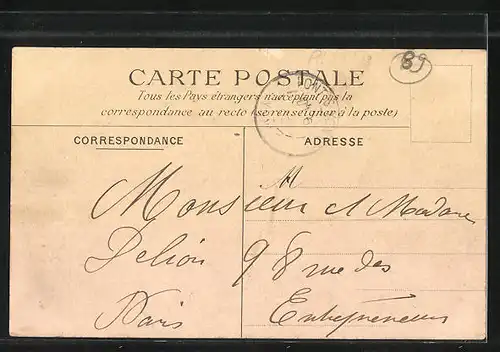 89
CARTE POSTALE
Tous les Pays étrangers n'acceptant pas la
correspondance au recto (se renseigner à la poste)
CORRESPONDANCE
ADRESSE
M
Monsieur et Madame
Delion 98 rue des
Paris Entrepreneurs